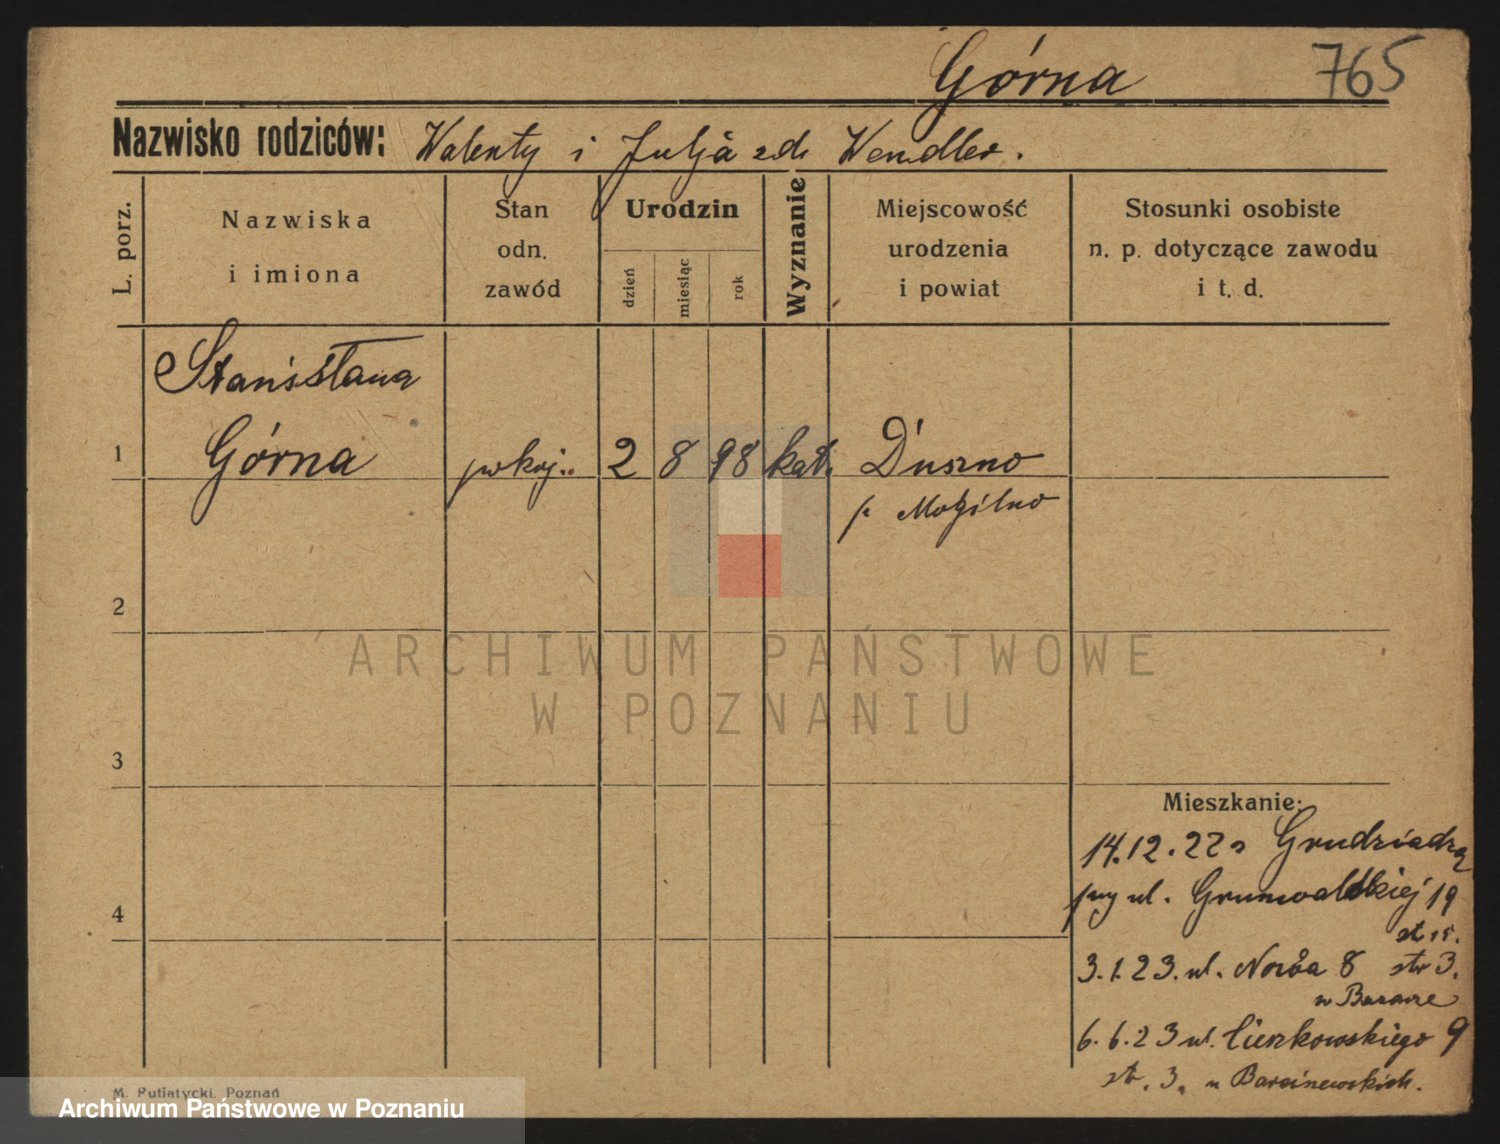 Górna 765
Nazwisko rodziców: Walenty i Julja zd. Wendler.
L. porz.
Nazwiska
i imiona
Stan
odn.
zawód
Urodzin
dzień
miesiąc
rok
Wyznanie
Miejscowość
urodzenia
i powiat
Stosunki osobiste
n. p. dotyczące zawodu
i t. d.
Stanisława
1 Górna pokoj.. 2 8 98 kat. Duszno
p. Mogilno
2
3
4
ARCHIWUM PAŃSTWOWE
W POZNANIU
Mieszkanie:
14.12.22 z Grudziądza
przy ul. Grunwaldzkiej 19
3.1.23. ul. Nowa 8 str 3.
6.6.23 ul. Cieszkowskiego 9
str. 3. u
M. Putiatycki, Poznań
Archiwum Państwowe w Poznaniu